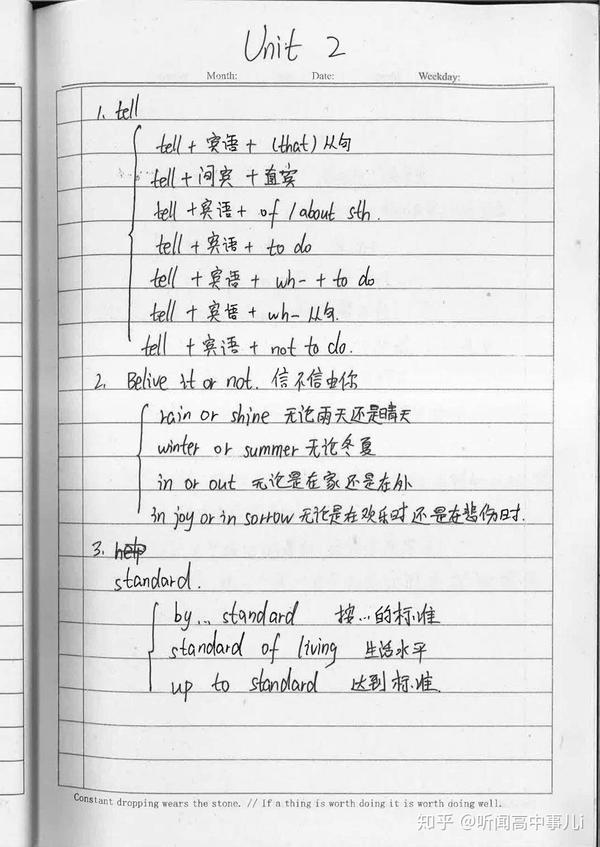 Unit 2
Month: Date: Weekday:
1. tell
tell +宾语 + (that) 从句
tell + 间宾 + 直宾
tell + 宾语 + of / about sth.
tell + 宾语 + to do
tell + 宾语 + wh- + to do
tell + 宾语 + wh- 从句.
tell + 宾语 + not to do.
2. Belive it or not. 信不信由你
rain or shine 无论雨天还是晴天
winter or summer 无论冬夏
in or out 无论是在家还是在外
in joy or in sorrow 无论是在欢乐时还是在悲伤时.
3. help
standard.
by... standard 按...的标准
standard of living 生活水平
up to standard 达到标准.
Constant dropping wears the stone. // If a thing is worth doing it is worth doing well.
知乎 @听闻高中事儿i